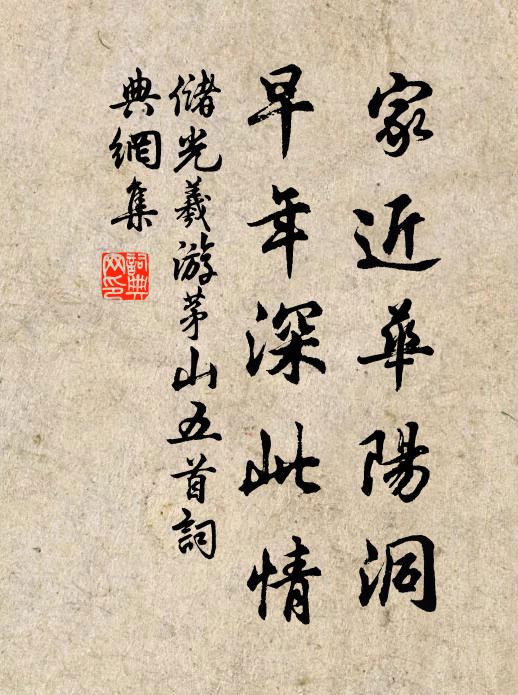 家近華陽洞
早年深此情
儲光羲游茅山五首詞
典網集
詞典網印